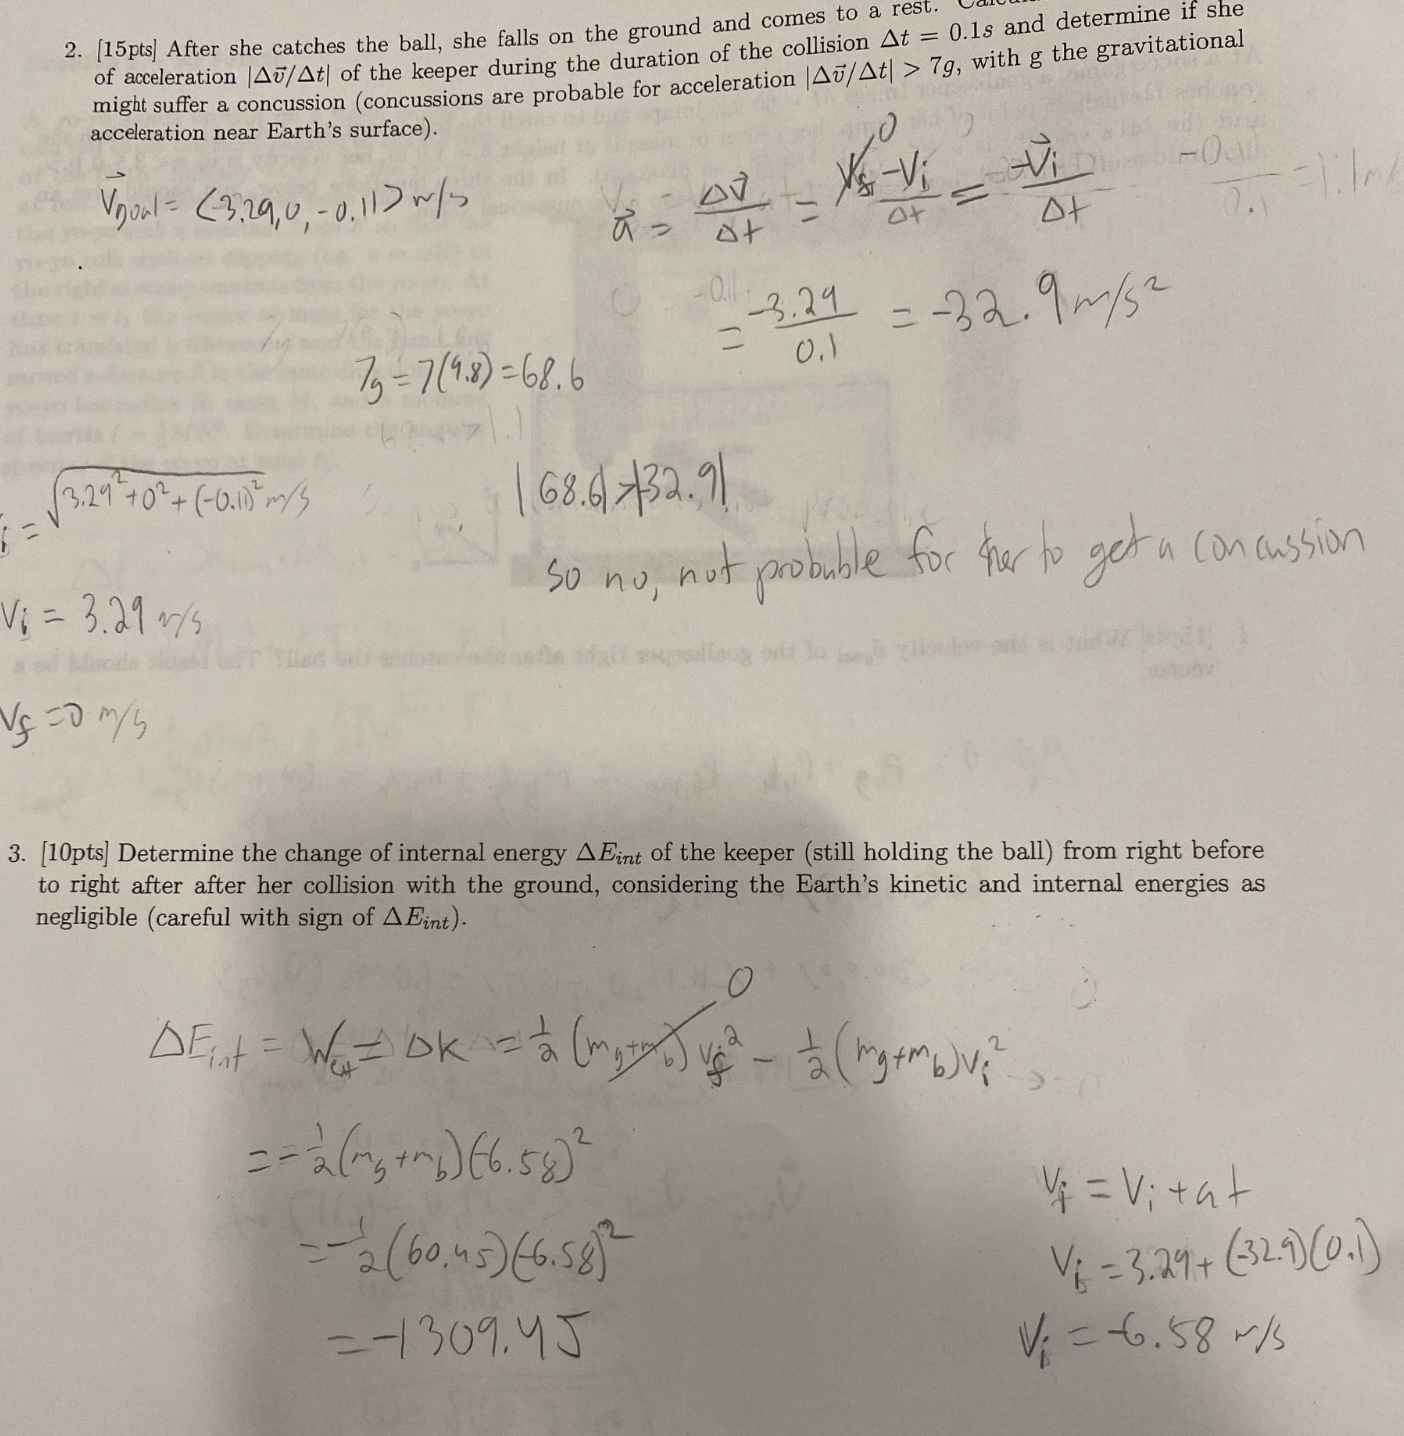 2. [15pts] After she catches the ball, she falls on the ground and comes to a rest.
of acceleration |Δv⃗/Δt| of the keeper during the duration of the collision Δt = 0.1s and determine if she
might suffer a concussion (concussions are probable for acceleration |Δv⃗/Δt| > 7g, with g the gravitational
acceleration near Earth's surface).
V⃗goal = <3.29, 0, -0.11> m/s
a⃗ = Δv⃗/Δt = (Vf - Vi)/Δt = -V⃗i/Δt
0
= -3.29/0.1 = -32.9 m/s²
7g = 7(9.8) = 68.6
= √(3.29² + 0² + (-0.11)²) m/s
|68.6| > |-32.9|
so no, not probable for her to get a concussion
Vi = 3.29 m/s
Vf = 0 m/s
3. [10pts] Determine the change of internal energy ΔEint of the keeper (still holding the ball) from right before
to right after after her collision with the ground, considering the Earth's kinetic and internal energies as
negligible (careful with sign of ΔEint).
0
ΔEint = Wext = ΔK = ½(mg+mb)vf² - ½(mg+mb)vi²
= -½(mg+mb)(-6.58)²
= -½(60.45)(-6.58)²
= -1309.4J
Vf = Vi + at
Vi = 3.29 + (-32.9)(0.1)
Vi = -6.58 m/s